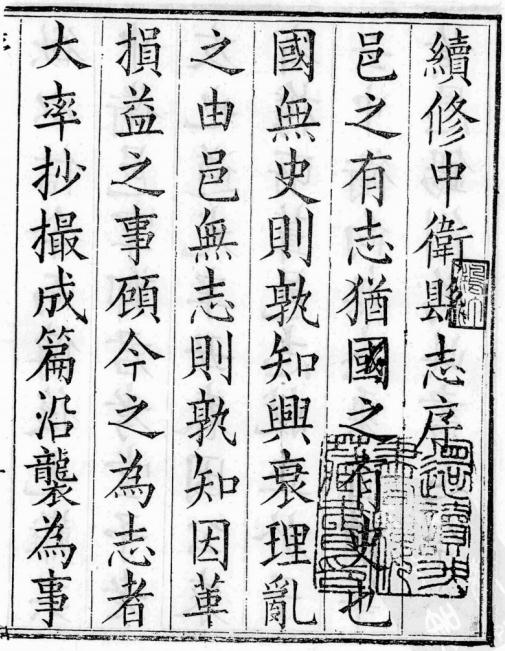 續修中衛縣志序
邑之有志猶國之有史也
國無史則孰知興衰理亂
之由邑無志則孰知因革
損益之事顧今之為志者
大率抄撮成篇沿襲為事